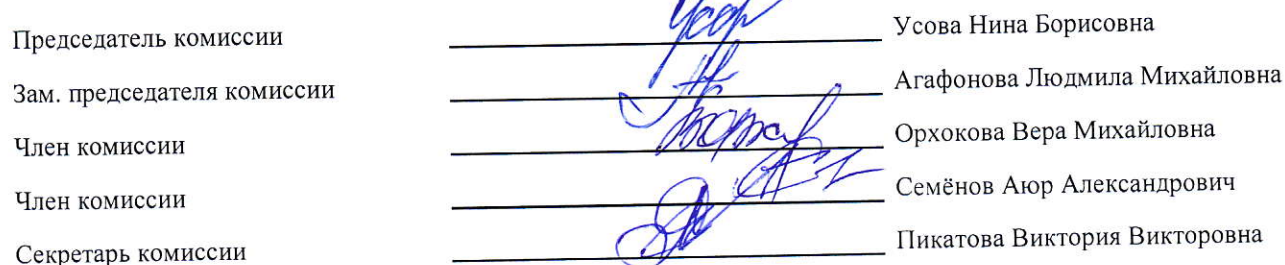 Председатель комиссии Усова Нина Борисовна
Зам. председателя комиссии Агафонова Людмила Михайловна
Член комиссии Орхокова Вера Михайловна
Член комиссии Семёнов Аюр Александрович
Секретарь комиссии Пикатова Виктория Викторовна